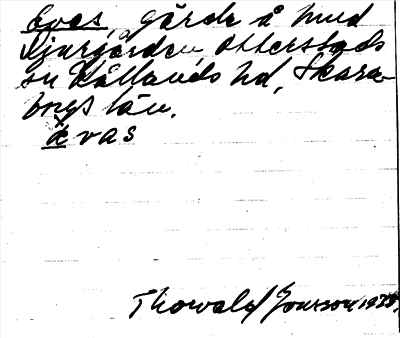 Evas, gärde å hmd
Djurgården, Otterstads
sn Kållands hd, Skara-
borgs län.
ävas
Thorvald Jonsson